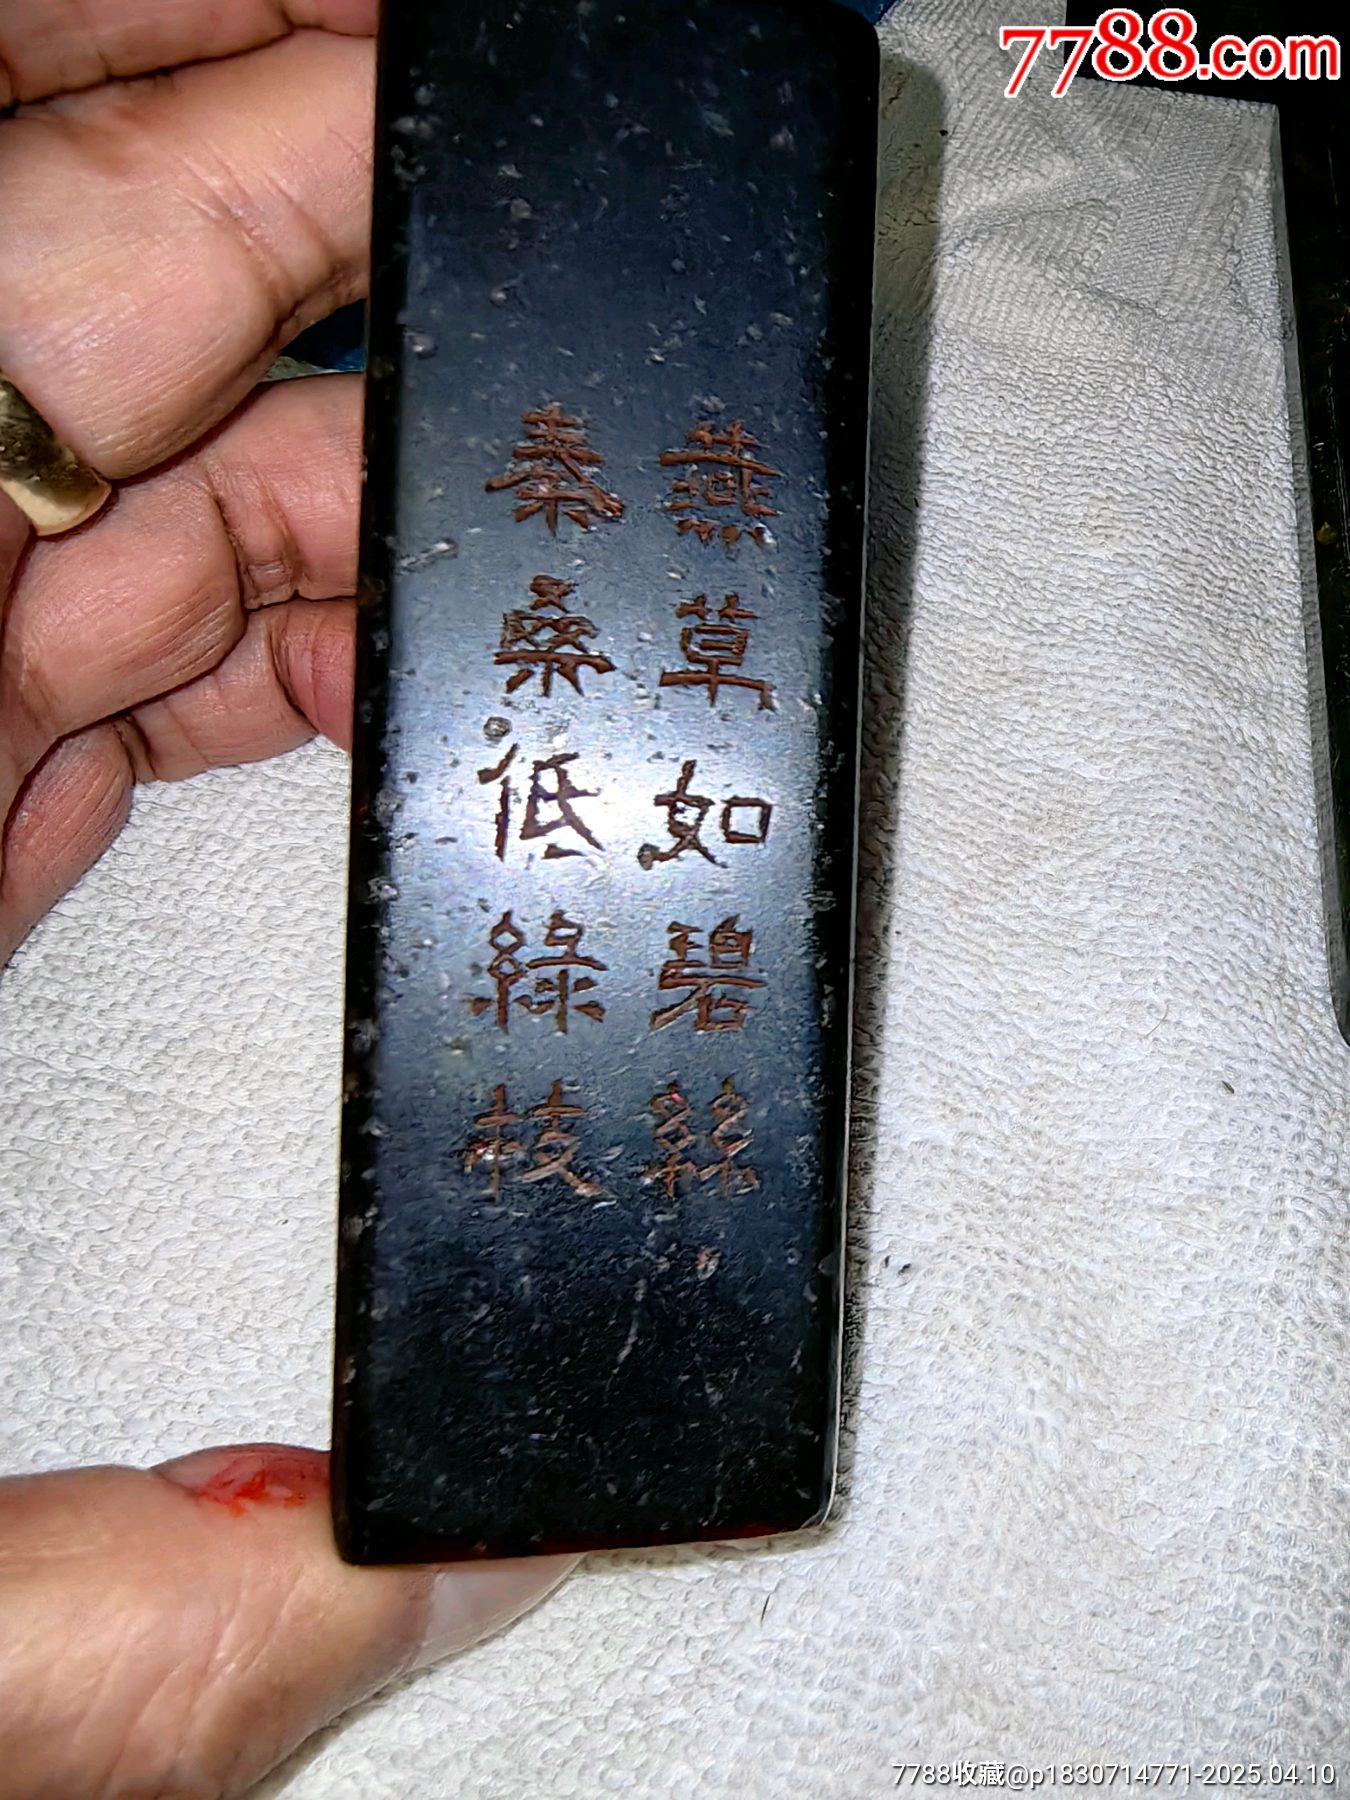 7788.com
燕草如碧絲
秦桑低綠枝
7788收藏@p1830714771-2025.04.10